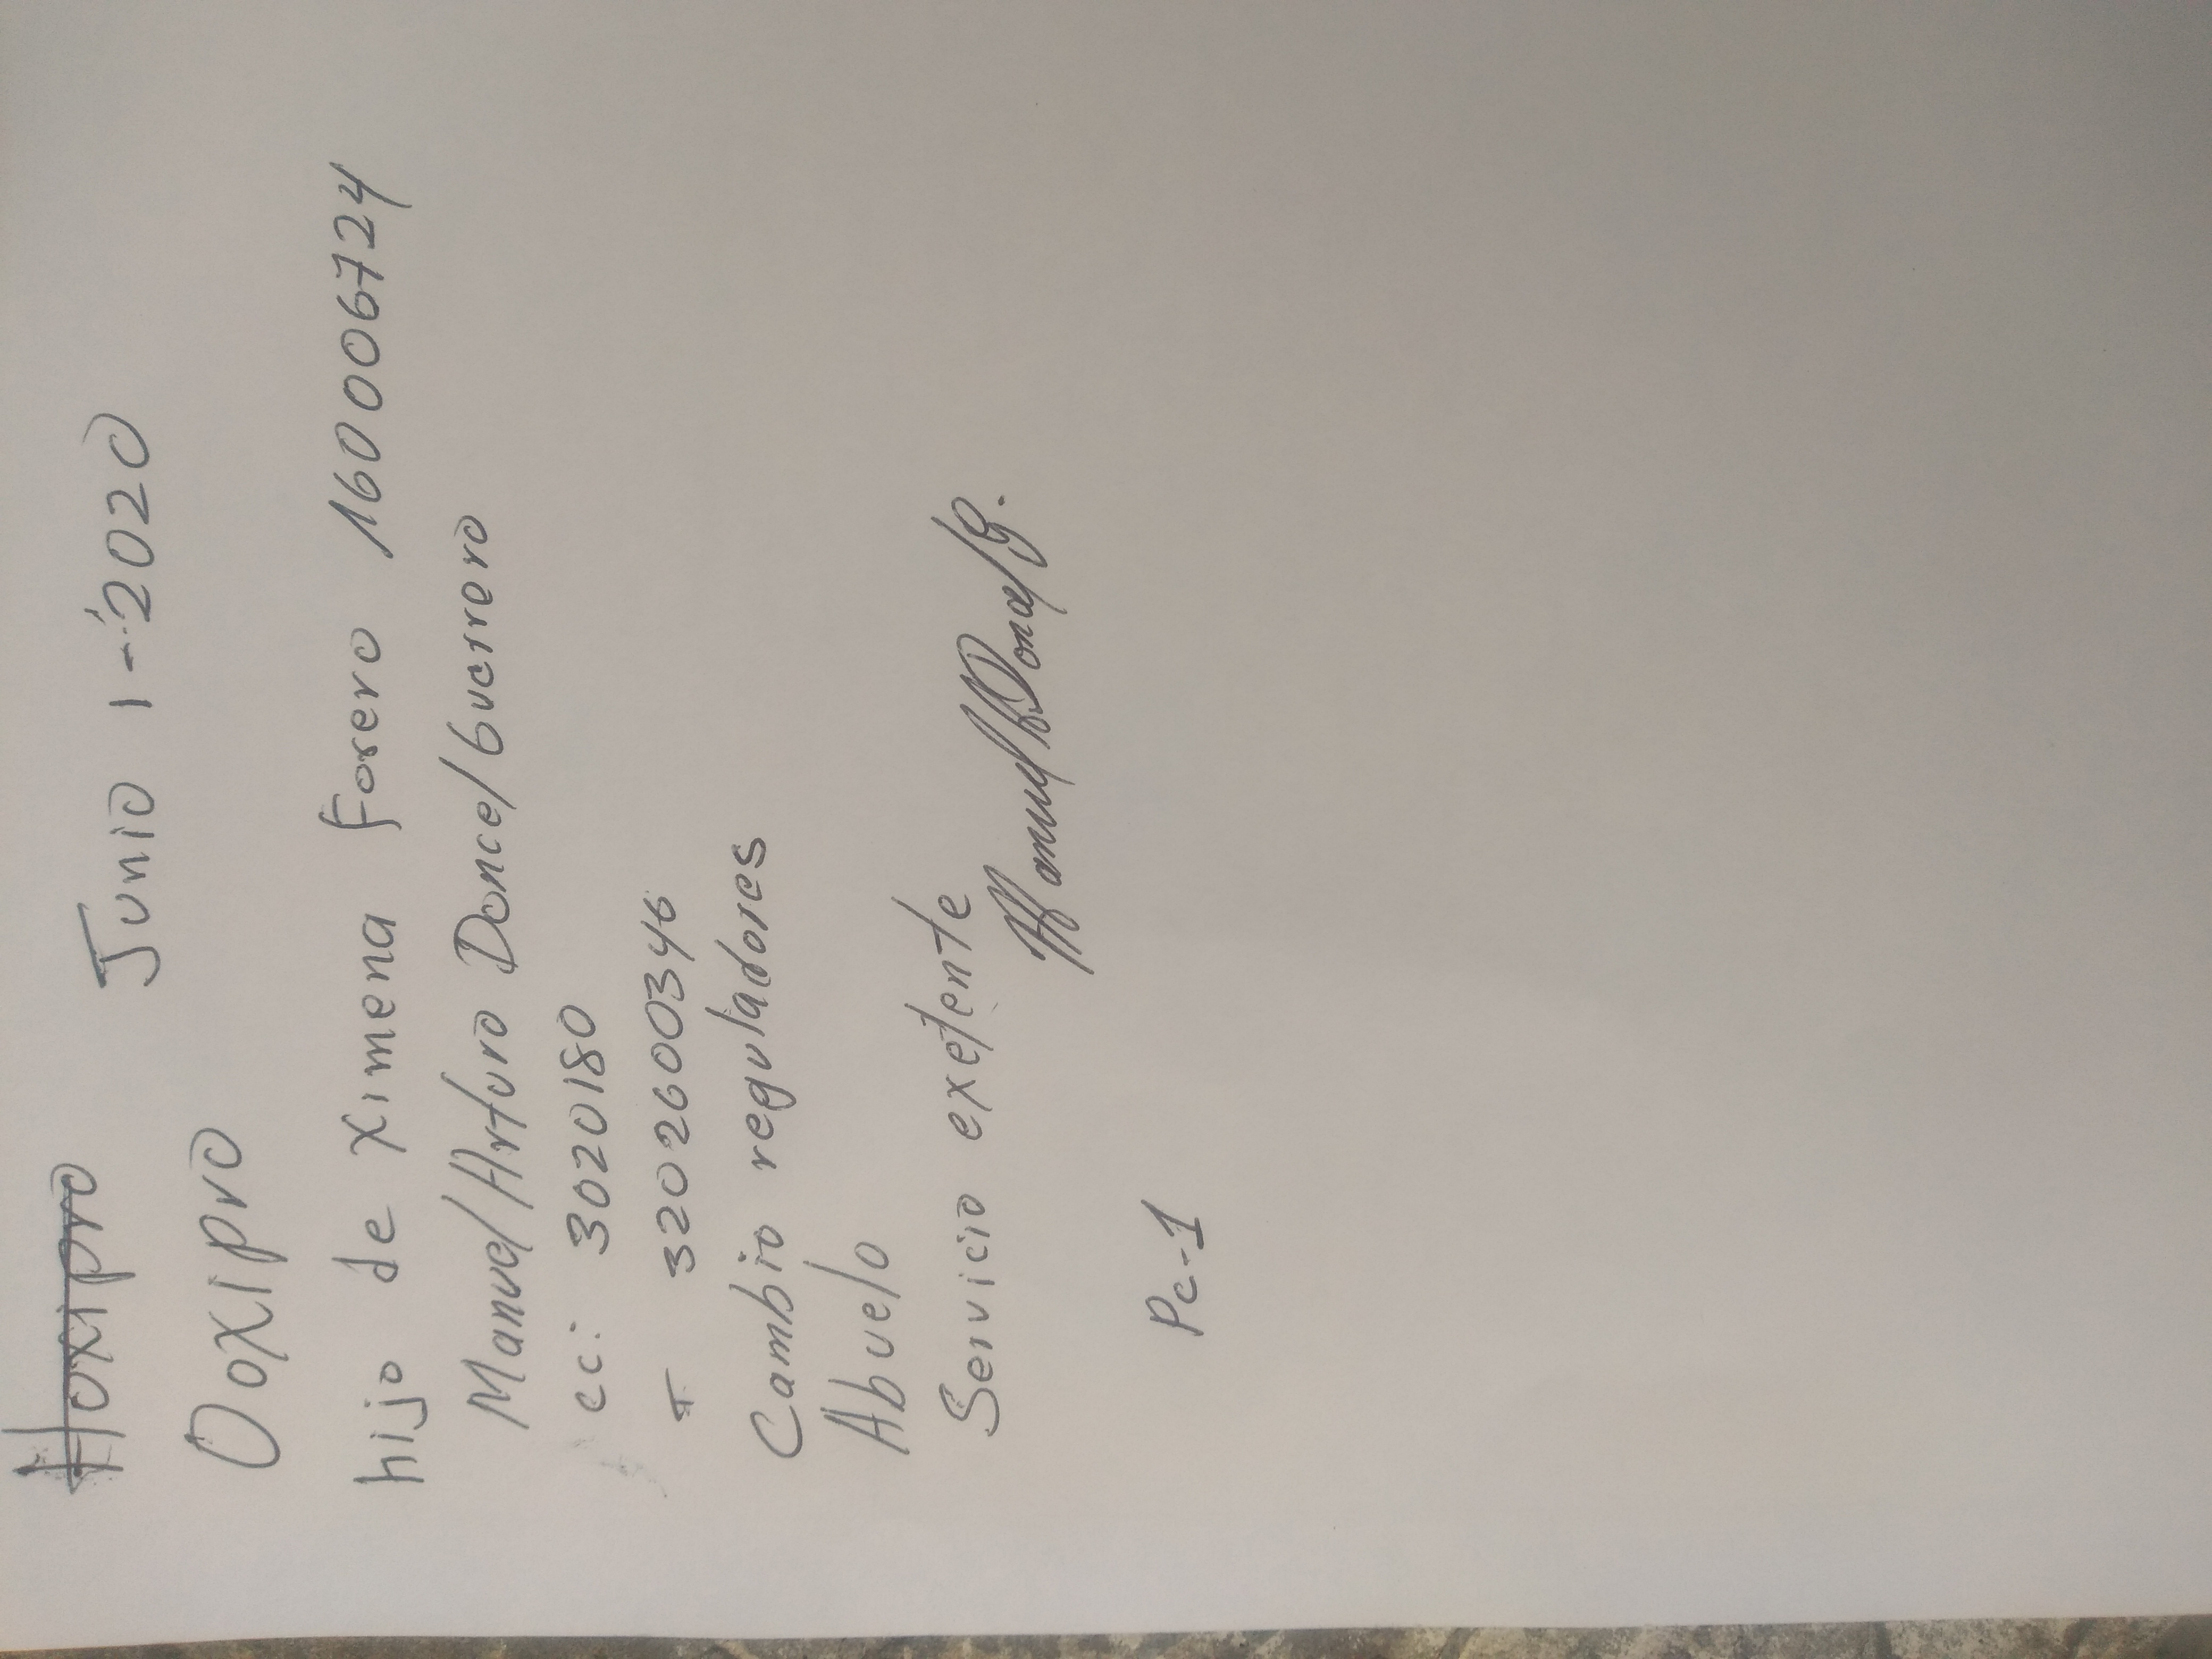 Hoxipro
Junio 1-2020
Ooxipro
hijo de Ximena Forero 1600006724
Manuel Arturo Doncel Guerrero
cc: 3020180
T 3202600346
Cambio reguladores
Abuelo
Servicio exelente
Manuel A Doncel G.
Pc-1